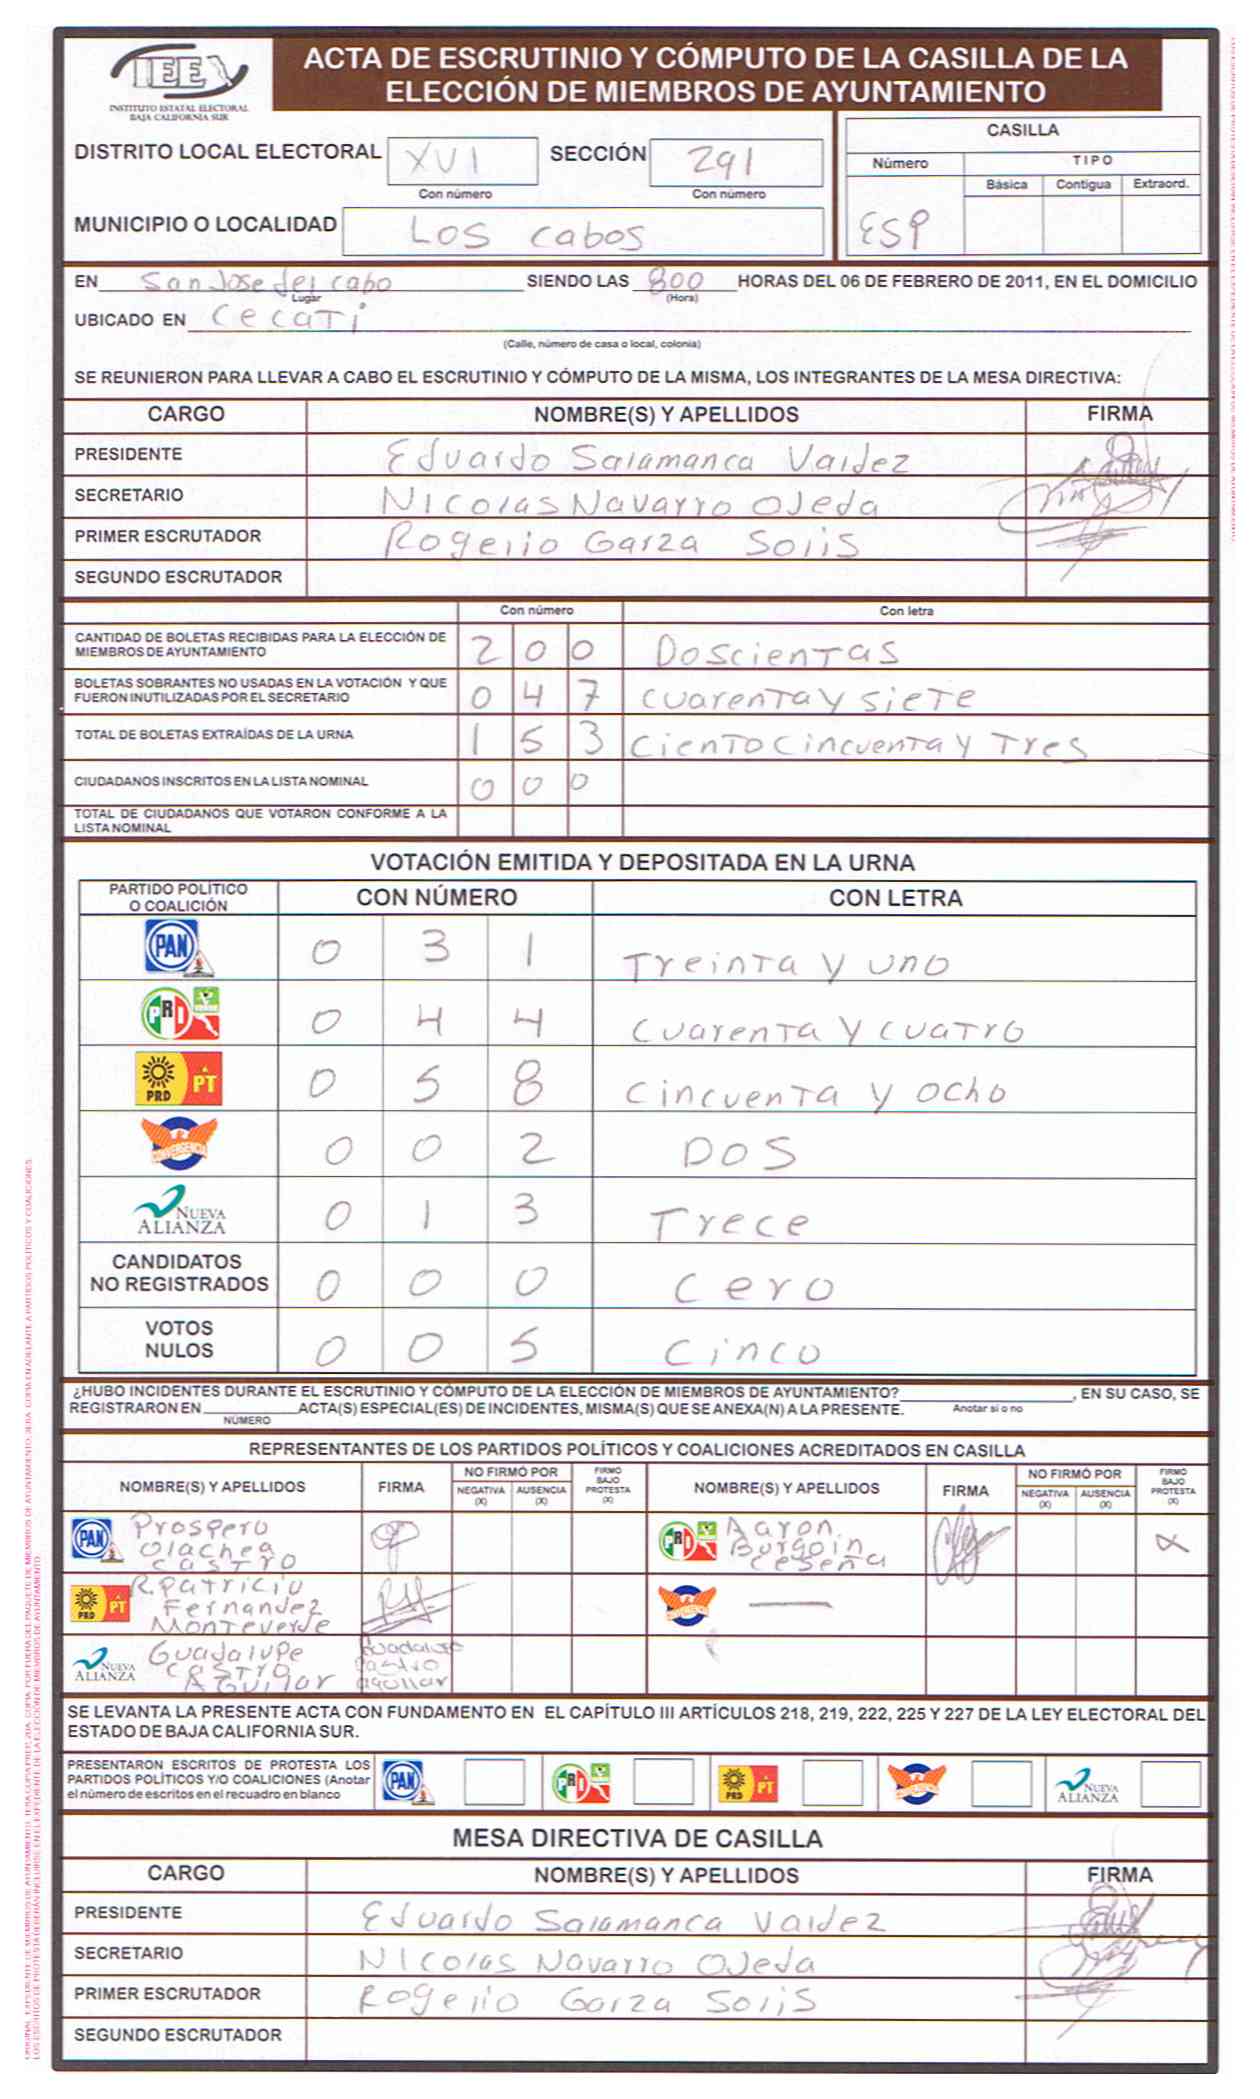 IEE
INSTITUTO ESTATAL ELECTORAL
BAJA CALIFORNIA SUR
ACTA DE ESCRUTINIO Y CÓMPUTO DE LA CASILLA DE LA
ELECCIÓN DE MIEMBROS DE AYUNTAMIENTO
DISTRITO LOCAL ELECTORAL XVI SECCIÓN 291
Con número Con número
MUNICIPIO O LOCALIDAD Los cabos
CASILLA
Número TIPO
Básica Contigua Extraord.
ESP
EN San Jose del cabo SIENDO LAS 800 HORAS DEL 06 DE FEBRERO DE 2011, EN EL DOMICILIO
Lugar (Hora)
UBICADO EN Cecati
(Calle, número de casa o local, colonia)
SE REUNIERON PARA LLEVAR A CABO EL ESCRUTINIO Y CÓMPUTO DE LA MISMA, LOS INTEGRANTES DE LA MESA DIRECTIVA:
CARGO NOMBRE(S) Y APELLIDOS FIRMA
PRESIDENTE Eduardo Salamanca Valdez
SECRETARIO Nicolas Navarro Ojeda
PRIMER ESCRUTADOR Rogelio Garza Solis
SEGUNDO ESCRUTADOR
Con número Con letra
CANTIDAD DE BOLETAS RECIBIDAS PARA LA ELECCIÓN DE
MIEMBROS DE AYUNTAMIENTO 2 0 0 Doscientas
BOLETAS SOBRANTES NO USADAS EN LA VOTACIÓN Y QUE
FUERON INUTILIZADAS POR EL SECRETARIO 0 4 7 cuarenta y siete
TOTAL DE BOLETAS EXTRAÍDAS DE LA URNA 1 5 3 ciento cincuenta y tres
CIUDADANOS INSCRITOS EN LA LISTA NOMINAL 0 0 0
TOTAL DE CIUDADANOS QUE VOTARON CONFORME A LA
LISTA NOMINAL
VOTACIÓN EMITIDA Y DEPOSITADA EN LA URNA
PARTIDO POLÍTICO
O COALICIÓN CON NÚMERO CON LETRA
PAN 0 3 1 Treinta y uno
PRI VERDE 0 4 4 cuarenta y cuatro
PRD PT 0 5 8 cincuenta y ocho
CONVERGENCIA 0 0 2 Dos
NUEVA ALIANZA 0 1 3 Trece
CANDIDATOS
NO REGISTRADOS 0 0 0 cero
VOTOS
NULOS 0 0 5 cinco
¿HUBO INCIDENTES DURANTE EL ESCRUTINIO Y CÓMPUTO DE LA ELECCIÓN DE MIEMBROS DE AYUNTAMIENTO? , EN SU CASO, SE
REGISTRARON EN ACTA(S) ESPECIAL(ES) DE INCIDENTES, MISMA(S) QUE SE ANEXA(N) A LA PRESENTE. Anotar si o no
NÚMERO
REPRESENTANTES DE LOS PARTIDOS POLÍTICOS Y COALICIONES ACREDITADOS EN CASILLA
NOMBRE(S) Y APELLIDOS FIRMA NO FIRMÓ POR NEGATIVA (X) AUSENCIA (X) FIRMÓ BAJO PROTESTA (X) NOMBRE(S) Y APELLIDOS FIRMA NO FIRMÓ POR NEGATIVA (X) AUSENCIA (X) FIRMÓ BAJO PROTESTA (X)
PAN Prospero Olachea Castro PRI Aaron Burgoin Ceseña X
PRD PT R. Patricio Fernandez Monteverde CONVERGENCIA
NUEVA ALIANZA Guadalupe Castro Aguilar Guadalupe Castro Aguilar
SE LEVANTA LA PRESENTE ACTA CON FUNDAMENTO EN EL CAPÍTULO III ARTÍCULOS 218, 219, 222, 225 Y 227 DE LA LEY ELECTORAL DEL
ESTADO DE BAJA CALIFORNIA SUR.
PRESENTARON ESCRITOS DE PROTESTA LOS
PARTIDOS POLÍTICOS Y/O COALICIONES (Anotar
el número de escritos en el recuadro en blanco
PAN PRI PRD PT CONVERGENCIA NUEVA ALIANZA
MESA DIRECTIVA DE CASILLA
CARGO NOMBRE(S) Y APELLIDOS FIRMA
PRESIDENTE Eduardo Salamanca Valdez
SECRETARIO Nicolas Navarro Ojeda
PRIMER ESCRUTADOR Rogelio Garza Solis
SEGUNDO ESCRUTADOR